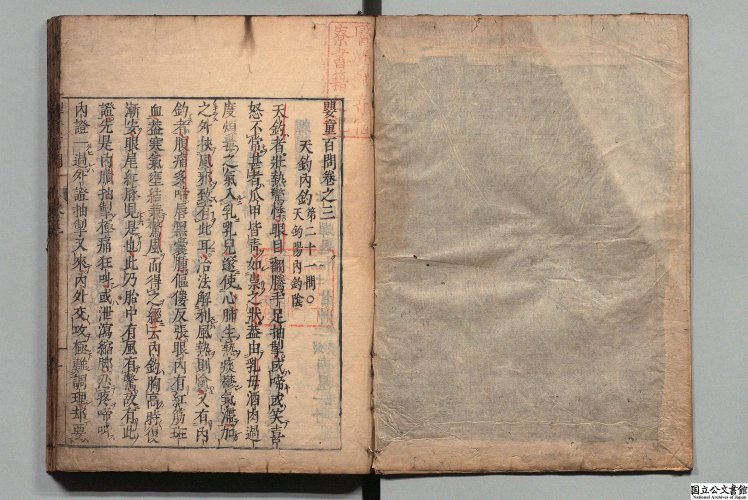 嬰童百問卷之三
天釣內釣 第二十一問○
天釣陽內釣陰
天釣者壯熱驚悸眼目翻騰手足抽掣或啼或笑喜
怒不常甚者瓜甲皆青如祟之狀蓋由乳母酒肉過
度煩毒之氣入乳乳兒遂使心肺生熱痰鬱氣滯加
之外挾風邪致有此耳治法解利風熱則愈又有內
釣者腹痛多喘唇黑囊腫傴僂反張眼內有紅筋斑
血蓋寒氣壅結兼驚風而得之經云內釣胸高時復
漸安眼尾紅脉見是也此乃胎中有風有驚故有此
證先是內臟抽掣極痛狂叫或泄瀉縮脚忍疼啼叫
內證一過外證抽掣又來內外交攻極難調理却要
国立公文書館
National Archives of Japan